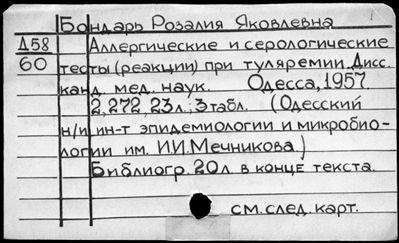 Бондарь Розалия Яковлевна
Д58 Аллергические и серологические
60 тесты (реакции) при туляремии. Дисс.
канд. мед. наук. Одесса, 1957.
2, 272, 23 л.; 3 табл. (Одесский
н/и ин-т эпидемиологии и микробио-
логии им. И.И. Мечникова.)
Библиогр. 20 л в конце текста.
см. след. карт.